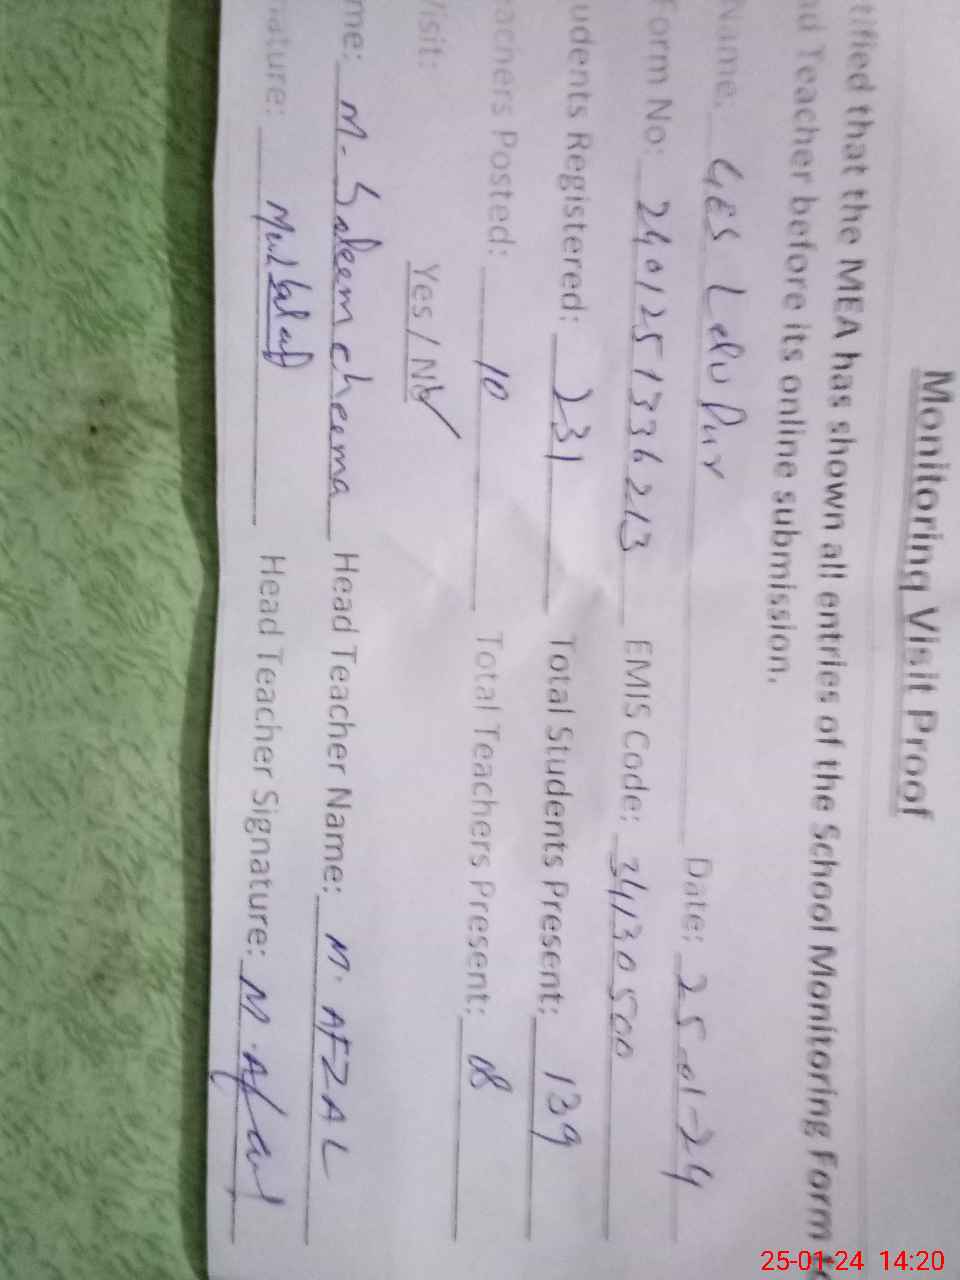 Monitoring Visit Proof
tified that the MEA has shown all entries of the School Monitoring Form
ad Teacher before its online submission.
Name: GES Lalu Pur Date: 25-01-24
Form No: 2401251336213 EMIS Code: 34130500
udents Registered: 231 Total Students Present: 139
eachers Posted: 10 Total Teachers Present: 08
Visit: Yes / No
me: M. Saleem cheema Head Teacher Name: M. AFZAL
nature: Head Teacher Signature: M. Afzal
25-01-24 14:20